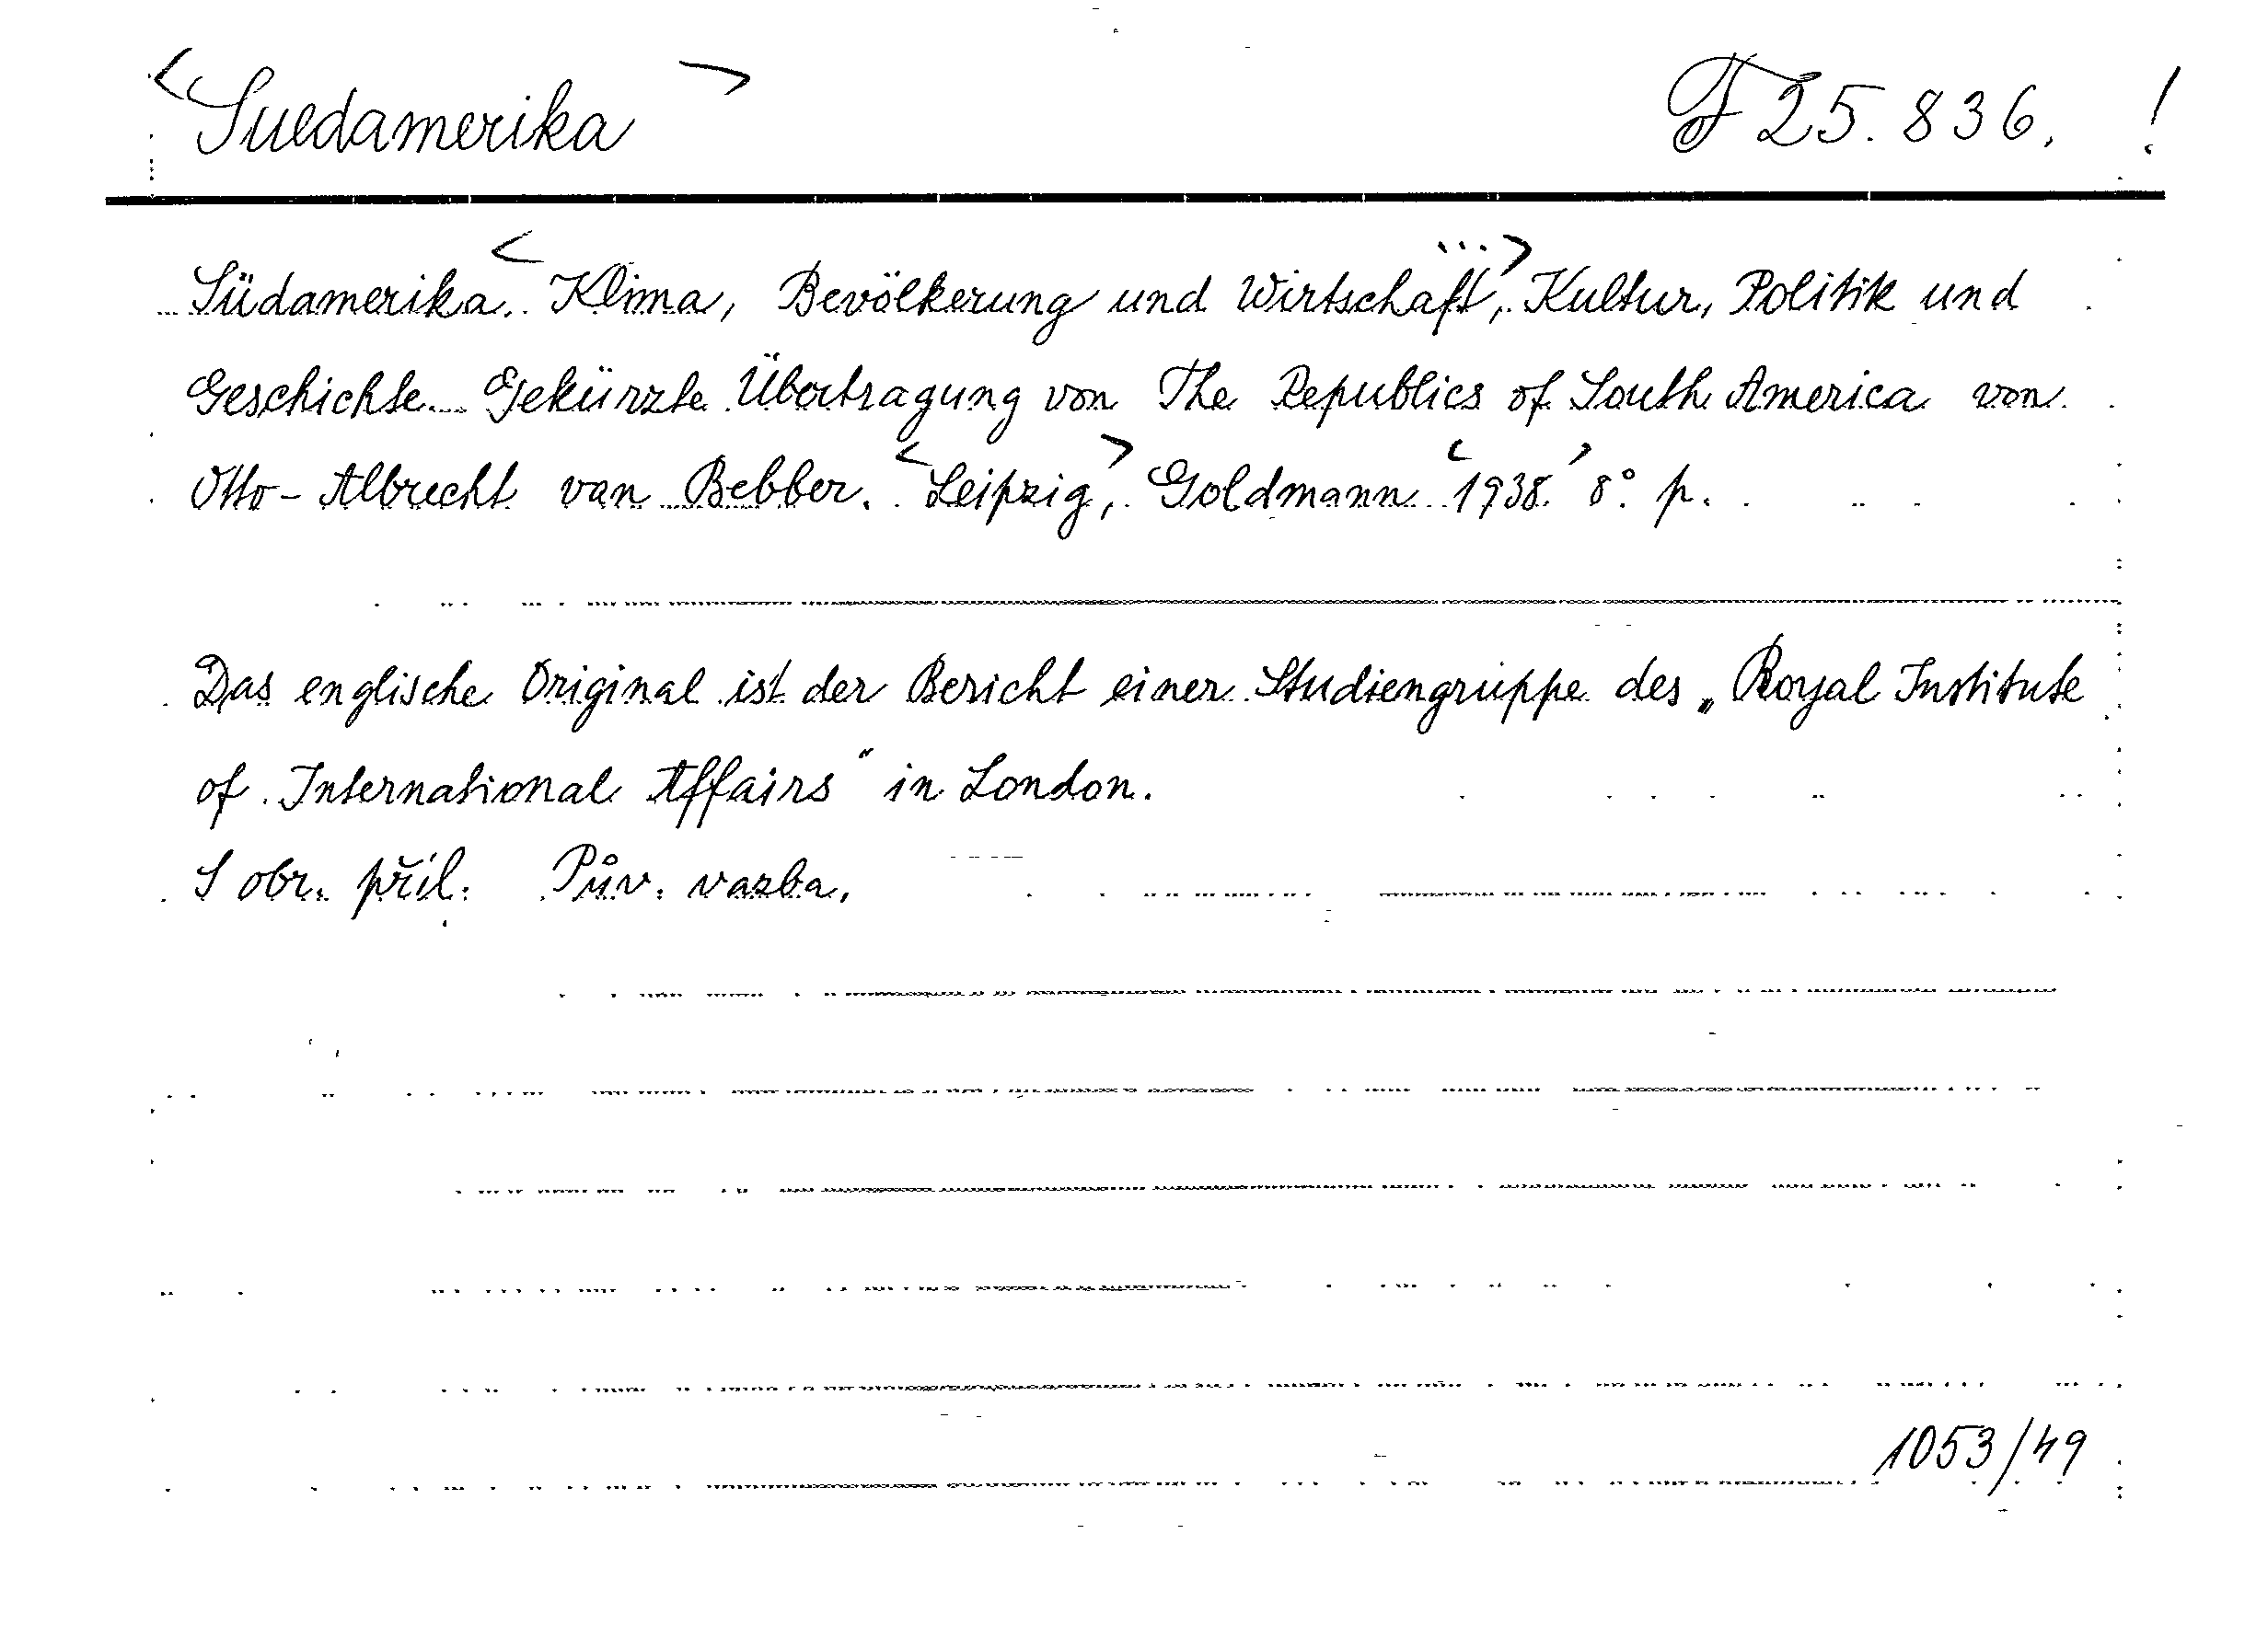 <Suedamerika> F 25.836. !
Südamerika. <Klima, Bevölkerung und Wirtschaft,...> Kultur, Politik und
Geschichte. Gekürzte Übertragung von The Republics of South America von
Otto-Albrecht van Bebber. <Leipzig,> Goldmann <1938.> 8° p.
Das englische Original ist der Bericht einer Studiengruppe des „Royal Institute
of International Affairs" in London.
S obr. příl. Pův. vazba.
1053/49